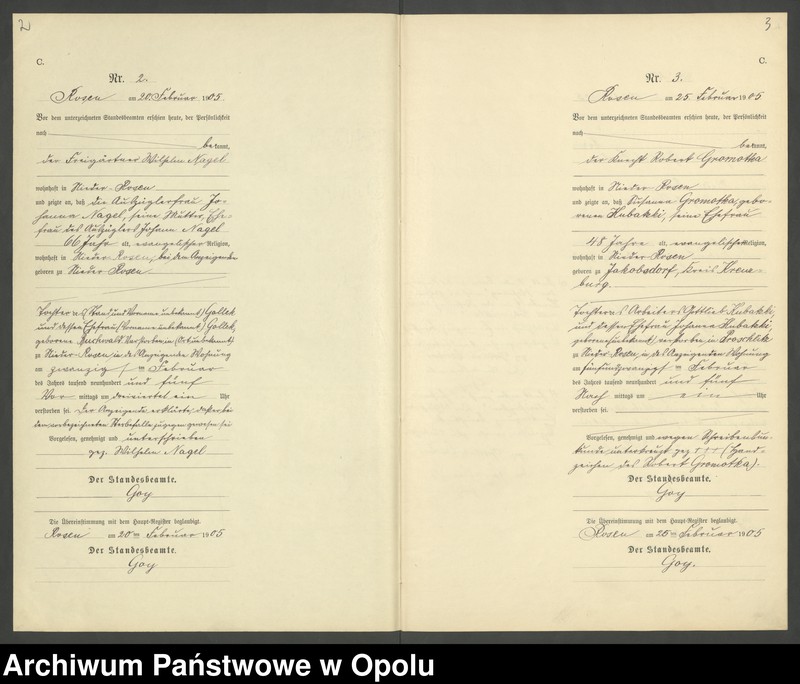 2
C.
Nr. 2.
Rosen am 20. Februar 1905.
Vor dem unterzeichneten Standesbeamten erschien heute, der Persönlichkeit
nach
bekannt,
der Freigärtner Wilhelm Nagel
wohnhaft in Nieder-Rosen
und zeigte an, daß die Auszüglerfrau Jo-
hanna Nagel, seine Mutter, Ehe-
frau des Auszüglers Johann Nagel
66 Jahr alt, evangelischer Religion,
wohnhaft in Nieder-Rosen, bei dem Anzeigenden
geboren zu Nieder-Rosen
Tochter des (Stand und Vorname unbekannt) Gollek
und dessen Ehefrau (Vorname unbekannt) Gollek,
geborene verstorben in (Ort unbekannt)
zu Nieder-Rosen, in des Anzeigenden Wohnung
am zwanzigsten Februar
des Jahres tausend neunhundert und fünf
Vor mittags um dreiviertel ein Uhr
verstorben sei. Der Anzeigende erklärte, daß er bei
dem vorbezeichneten Sterbefalle zugegen gewesen sei
Vorgelesen, genehmigt und unterschrieben
gez. Wilhelm Nagel
Der Standesbeamte.
Goy
Die Übereinstimmung mit dem Haupt-Register beglaubigt.
Rosen am 20ten Februar 1905
Der Standesbeamte.
Goy
3
C.
Nr. 3.
Rosen am 25. Februar 1905
Vor dem unterzeichneten Standesbeamten erschien heute, der Persönlichkeit
nach
bekannt,
der Knecht Robert Gromotka
wohnhaft in Nieder-Rosen
und zeigte an, daß Susanna Gromotka, gebo-
renen Kubatzki, seine Ehefrau
48 Jahre alt, evangelischer Religion,
wohnhaft in Nieder-Rosen
geboren zu Jakobsdorf, Kreis Kreuz-
burg.
Tochter des Arbeiters Gottlieb Kubatzki,
und dessen Ehefrau Johanna Kubatzki,
geborene unbekannt, verstorben in Proschlitz
zu Nieder-Rosen, in des Anzeigenden Wohnung
am fünfundzwanzigsten Februar
des Jahres tausend neunhundert und fünf
Nach mittags um ein Uhr
verstorben sei.
Vorgelesen, genehmigt und wegen Schreibenun-
kunde unterkreuzt gez. + + + (Hand-
zeichen des Robert Gromotka).
Der Standesbeamte.
Goy
Die Übereinstimmung mit dem Haupt-Register beglaubigt.
Rosen am 25ten Februar 1905
Der Standesbeamte.
Goy.
Archiwum Państwowe w Opolu